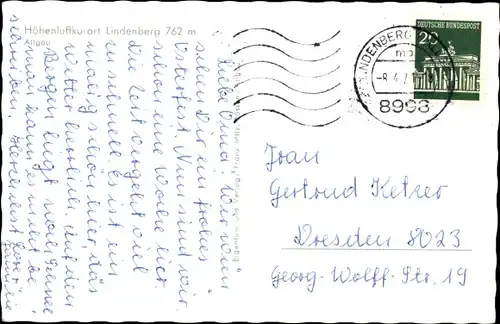 Höhenluftkurort Lindenberg 762 m
Allgäu
Liebe Oma! Wir wün
schen Dir ein frohes
Osterfest. Nun sind wir
schon eine Woche hier.
Die Zeit vergeht viel
zu schnell. Es ist ein
malig schön hier, das
Wetter herrlich. Auf den
Bergen liegt noch Schnee
man kann es nicht be
schreiben. Herzlichst Eure
Familie
LINDENBERG
8998
DEUTSCHE BUNDESPOST
20
Frau
Gertrud Ketzer
Dresden 8023
Georg-Wolff-Str. 19